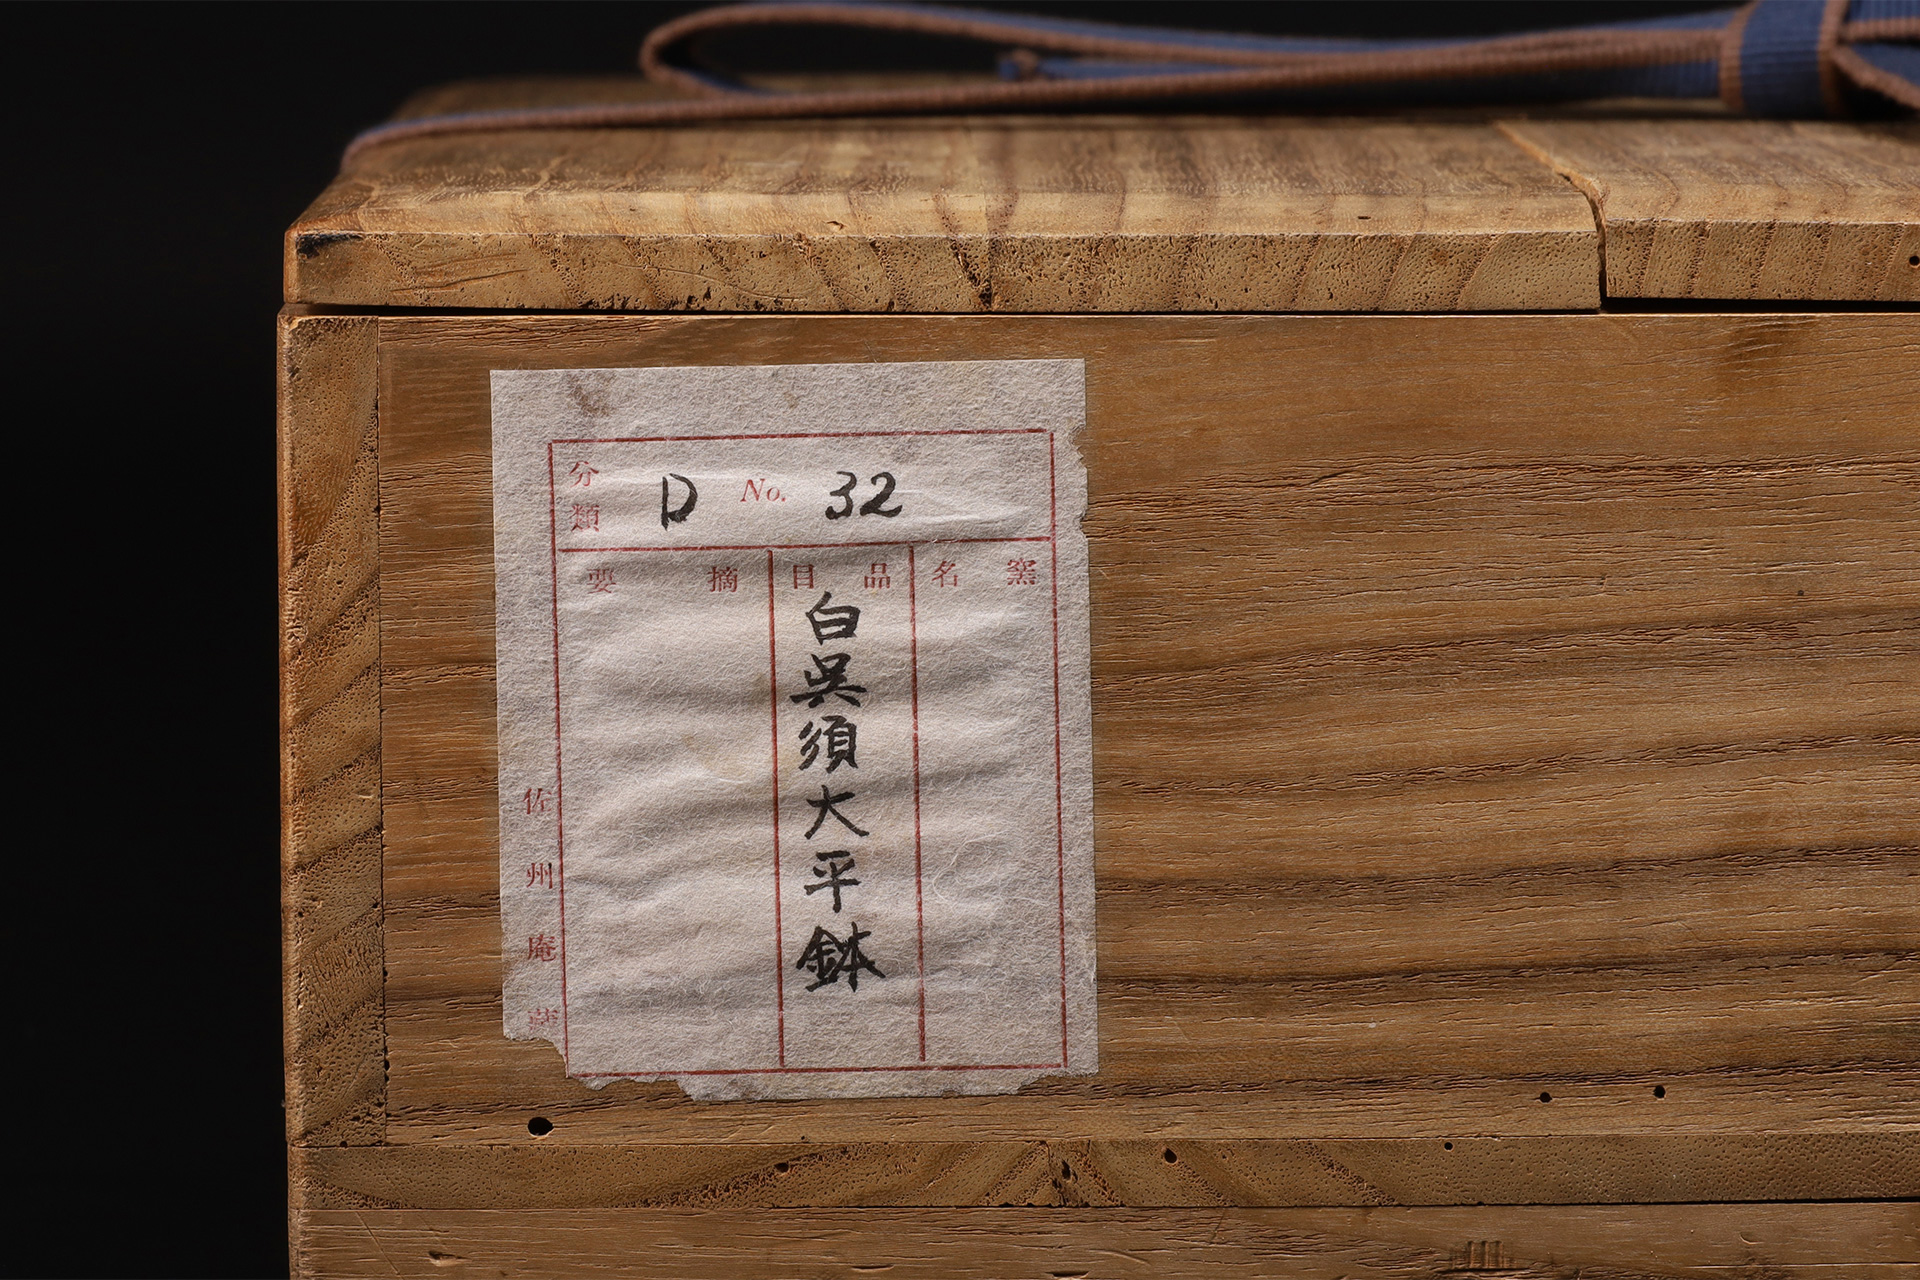 分類 D No. 32
窯名
品目
摘要
白呉須大平鉢
佐州庵蔵